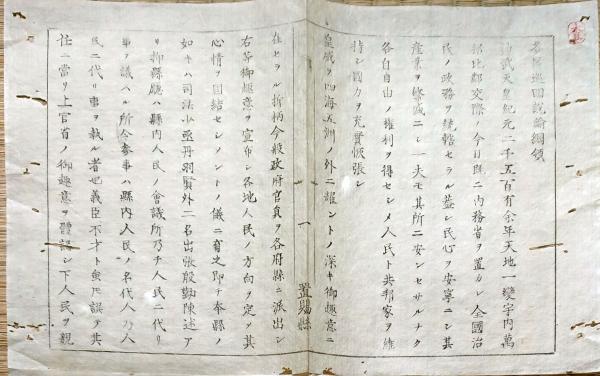 各区巡回説諭綱領
神武天皇紀元二千五百有余年天地一變宇内萬
邦比鄰交際ノ今日既ニ内務省ヲ置カレ全國治
民ノ政務ヲ統轄セラル蓋シ民心ヲ安寧ニシ其
産業ヲ繁盛ニシ一夫モ其所ニ安ンセサルナク
各自自由ノ権利ヲ得セシメ人民ト共邦家ヲ維
持シ國力ヲ充實恢張シ
皇威ヲ四海五洲ノ外ニ耀ントノ深キ御趣意ニ
在セラル折柄今般政府官員ヲ各府縣ニ派出シ
右等御趣意ヲ宣布シ各地人民ノ方向ヲ定メ其
心情ヲ固結セシメントノ儀ニ有之即チ本縣ノ
如キハ司法小丞丹羽賢外二名出張慇懃陳述ア
リ抑縣廳ハ縣内人民ノ會議所乃チ人民ニ代リ
事ヲ議ハル所令参事ハ縣内人民ノ名代人乃人
民ニ代リ事ヲ執ル者也義臣不才ト虽モ誤テ其
任ニ當リ上官省ノ御趣意ヲ體認シ下人民ヲ親
一
置賜縣